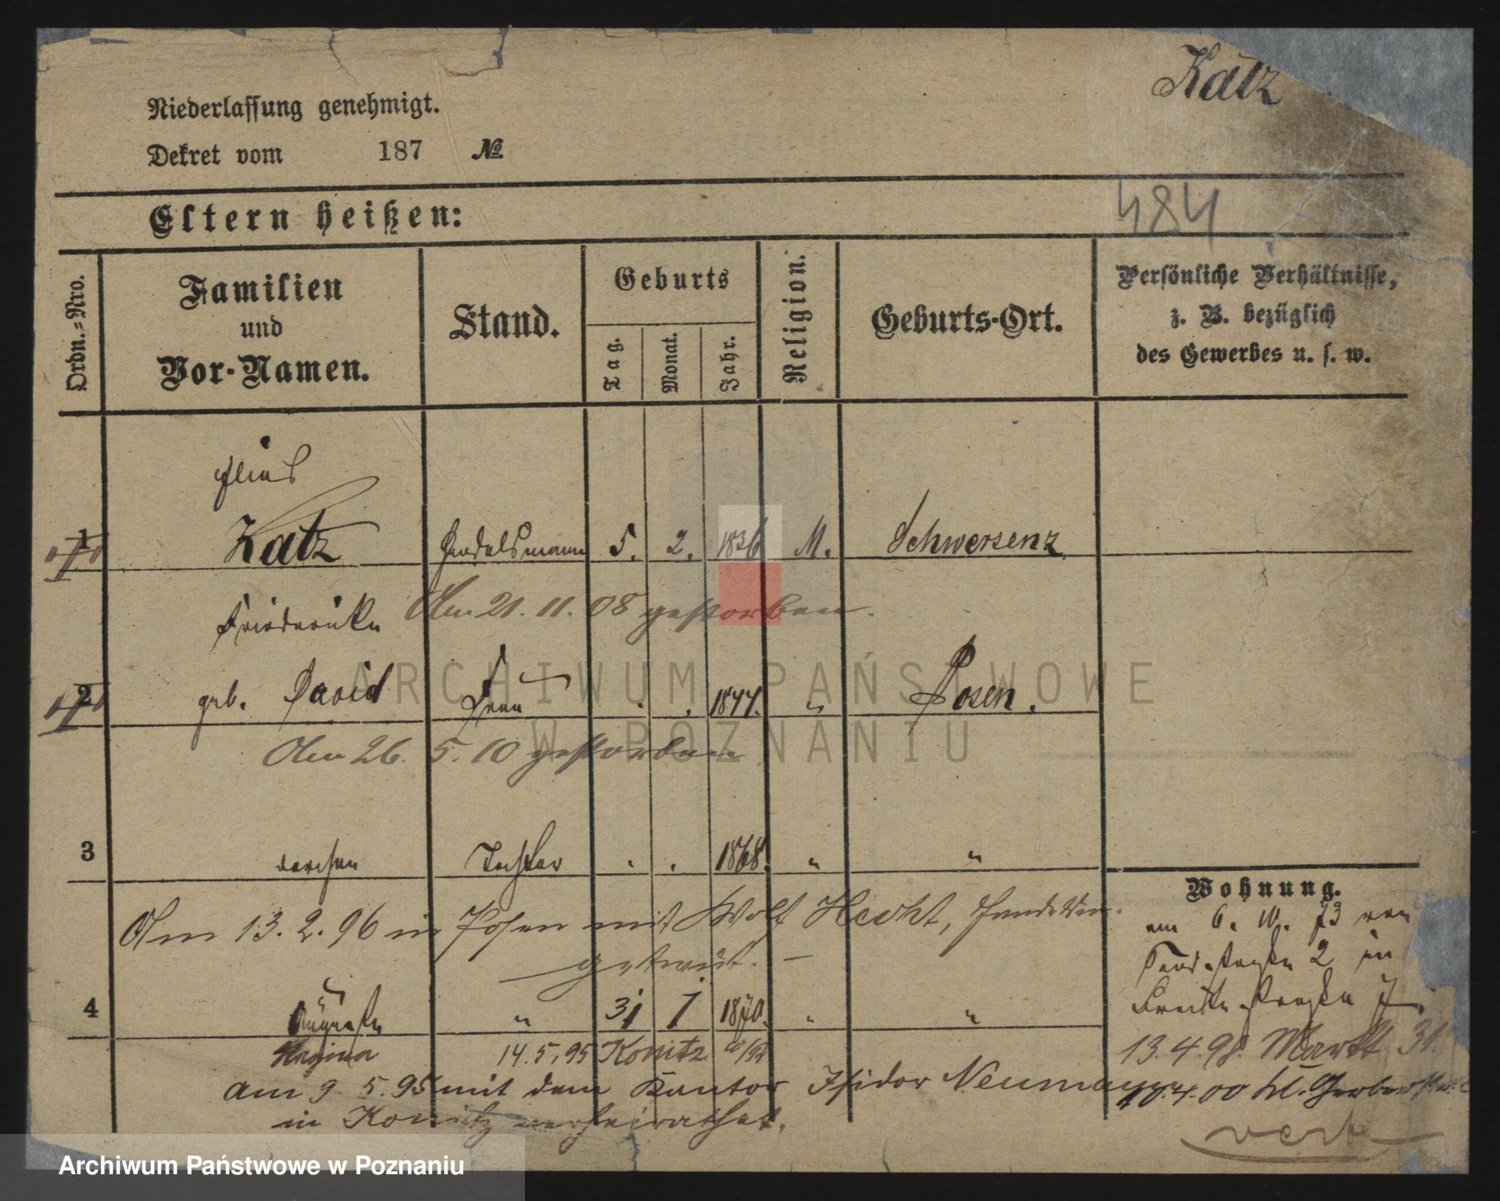 Katz
Niederlassung genehmigt.
Dekret vom 187 №
484
Eltern heißen:
Ordn.-Nro.
Familien und Vor-Namen.
Stand.
Geburts
Tag.
Monat.
Jahr.
Religion.
Geburts-Ort.
Persönliche Verhältnisse,
z. B. bezüglich
des Gewerbes u. s. w.
1 Katz Handelsmann 5. 2. 1836 M. Schwersenz
Friederike
Am 21. 11. 08 gestorben.
2 geb. David Frau 1844. " Posen.
Am 26. 5. 10 gestorben
3 Tochter 1868. " "
Wohnung.
Am 13. 2. 96 in Posen mit Wolf Hecht,
getraut. —
am 6. 10. 73 von
2 in
Breitestraße 7
4 Auguste " 31 1 1870. " "
Regina 14.5.95 Konitz
13.4.98. Markt 31.
Am 9. 5. 95 mit dem Kantor Isidor Neumann
in Konitz verheirathet.
10.4.00 kl. Gerberstr.
ARCHIWUM PAŃSTWOWE
W POZNANIU
Archiwum Państwowe w Poznaniu